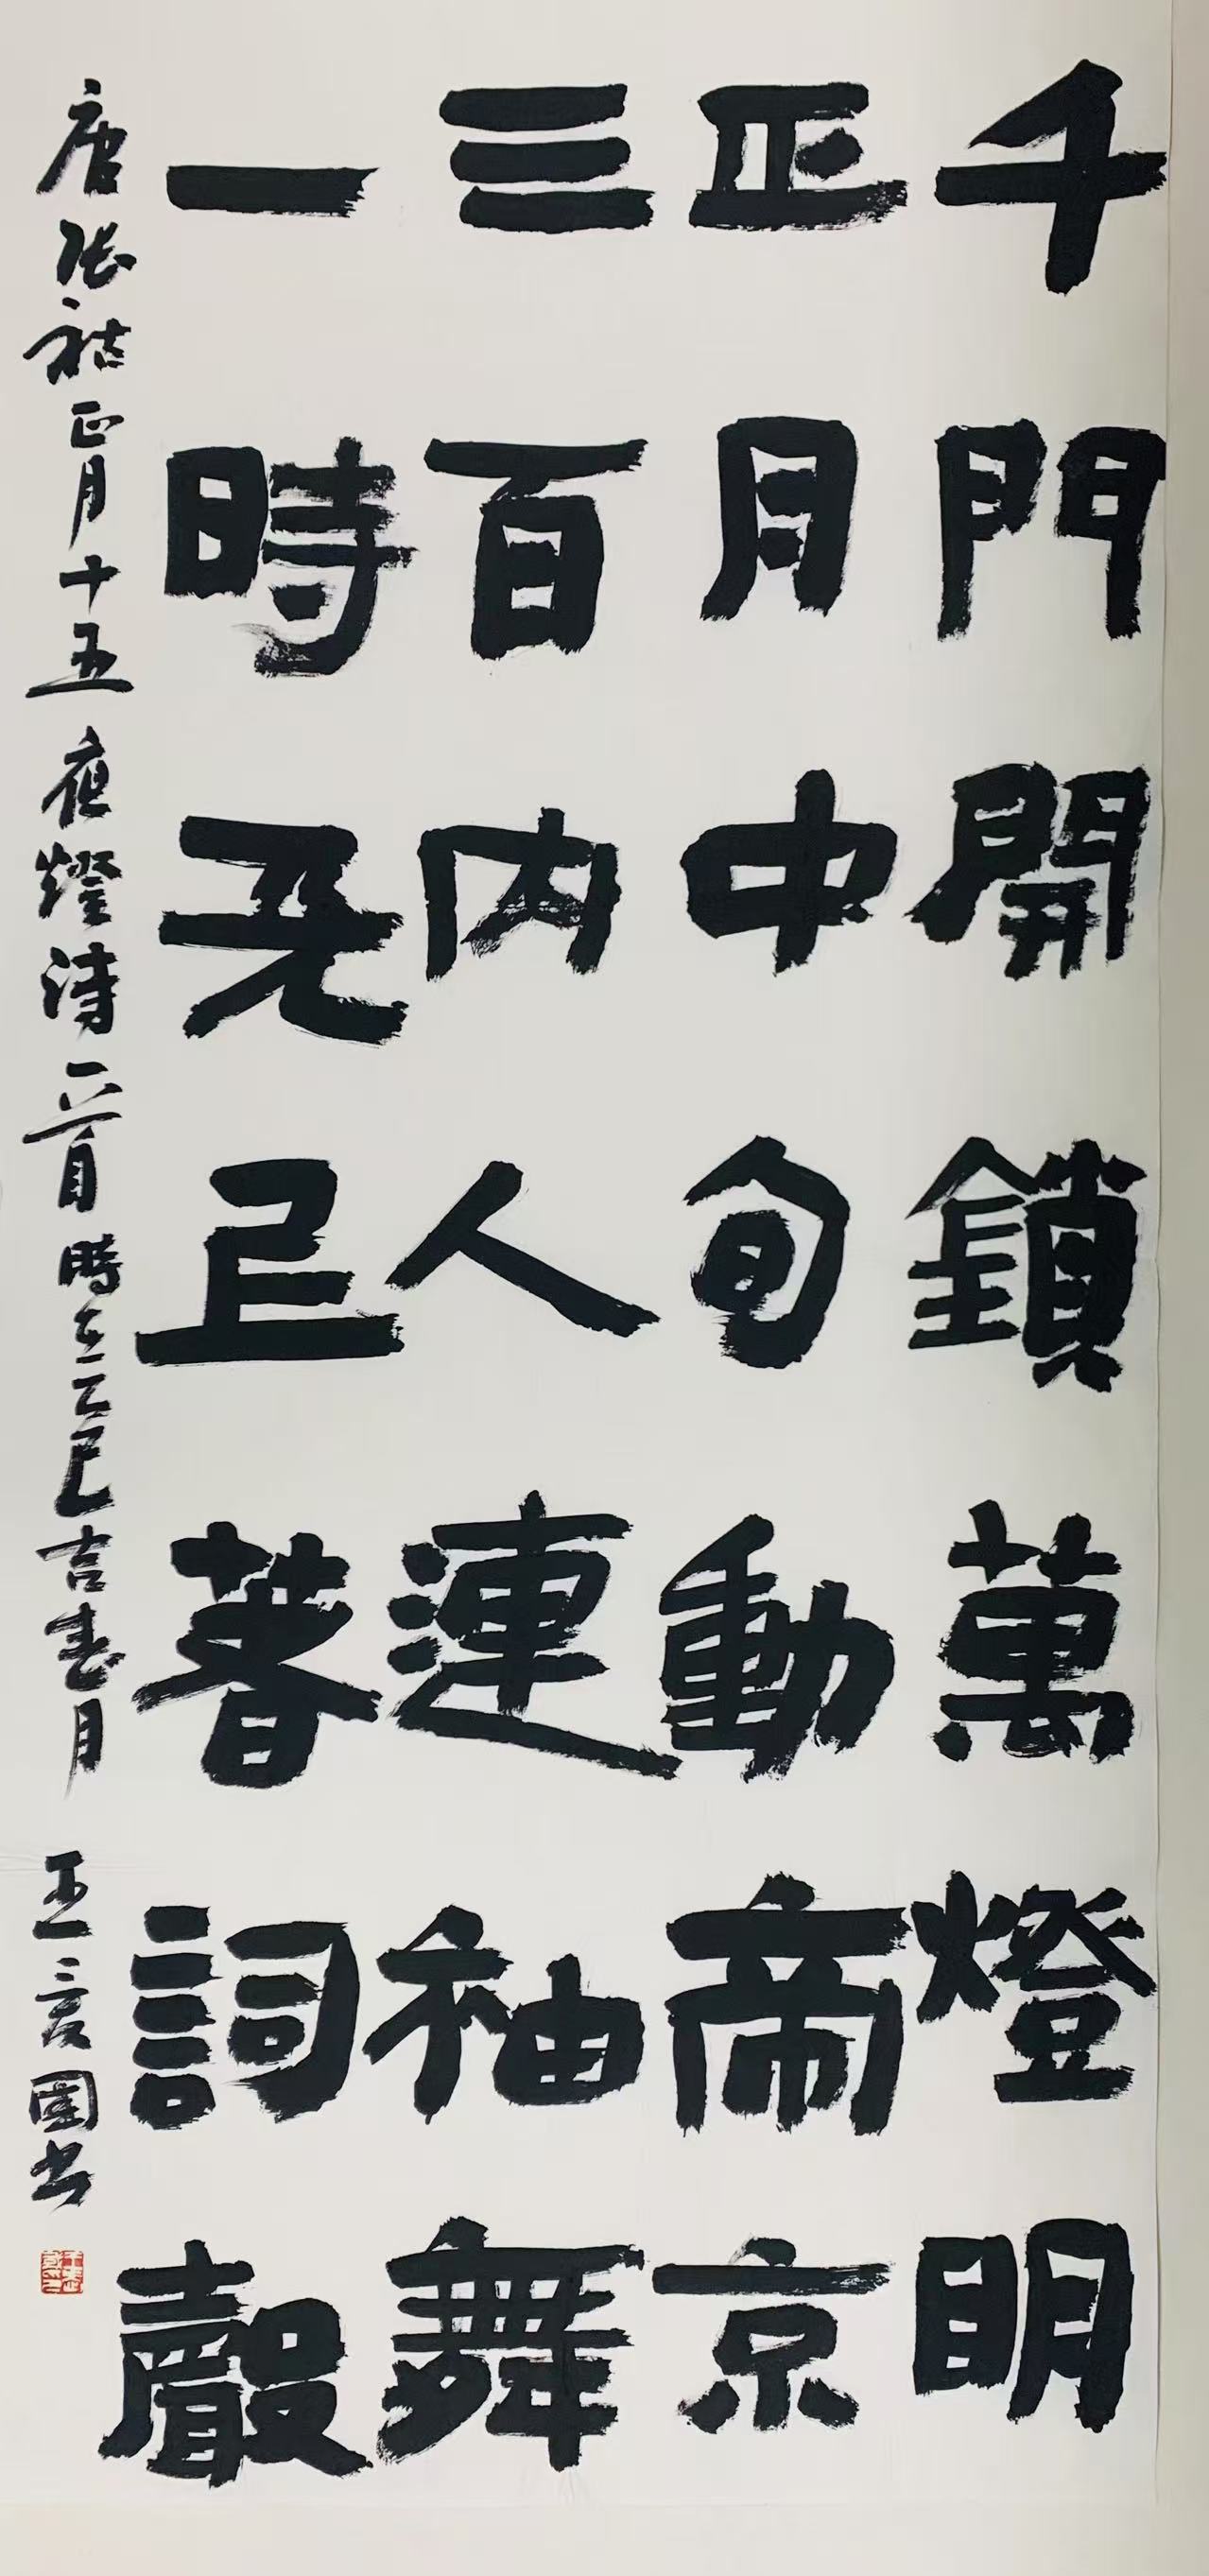 千門開鎖萬燈明
正月中旬動帝京
三百内人連袖舞
一時天上著詞聲
唐張祜正月十五夜燈詩一首時在乙巳吉春月 王彥國书